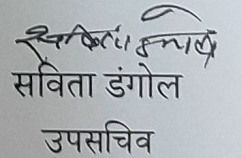 सविता डंगोल
उपसचिव